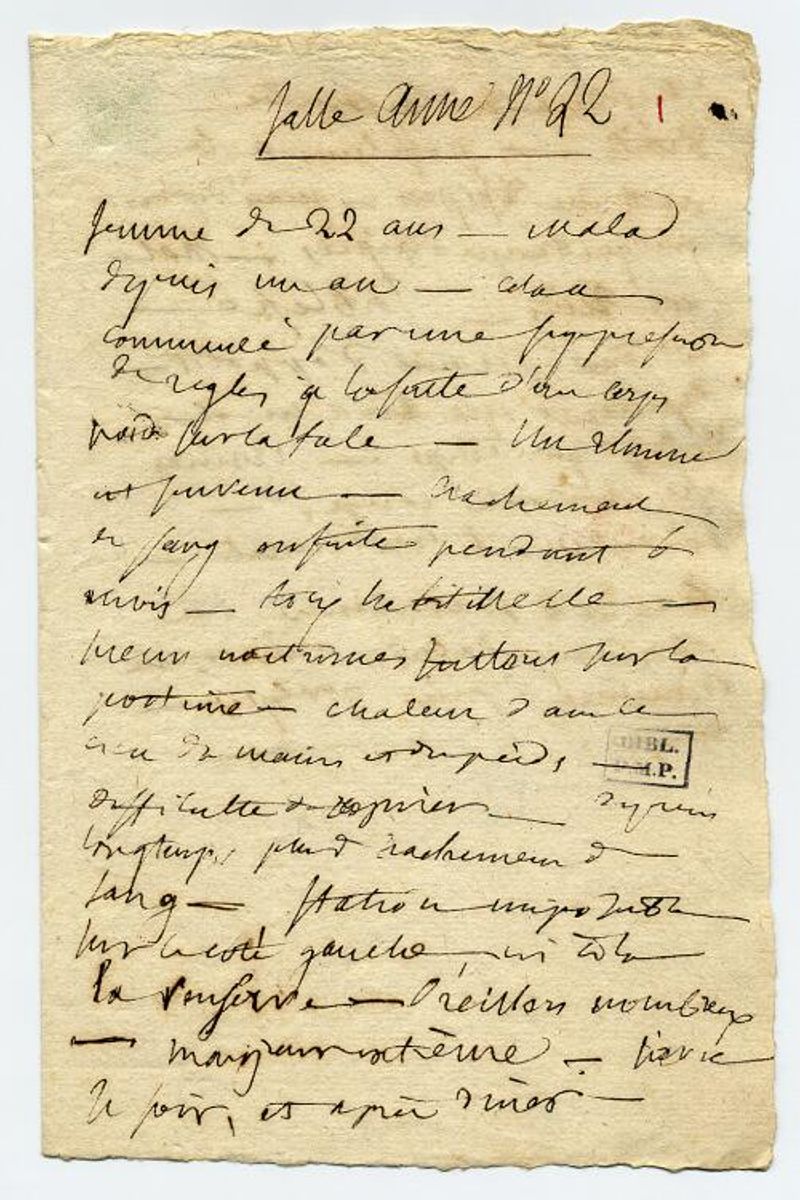 Salle Anne N° 22
1
femme de 22 ans — malad
depuis un an — cela a
commencé par une suppression
de règles à la suite d'un corps
sur la — un rhume
est survenu — crachement
de sang ensuite pendant 6
mois — toux habituelle —
sueurs nocturnes surtout sur la
poitrine — chaleur dans le
creu de mains et du pieds —
BIBL.
F.M.P.
difficulté de respirer — depuis
longtemps plus d crachemen de
sang —
sur le coté gauche
— crachats nombreux
— maigreur extrème — fievre
le soir, et après diner —